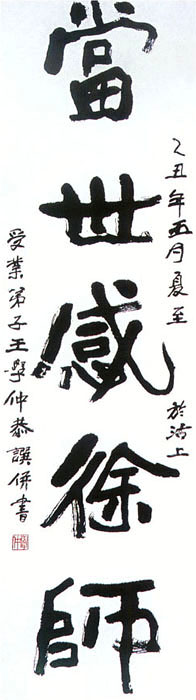 當世感徐師
乙丑年五月夏至 於沽上
受業弟子王學仲恭譔併書